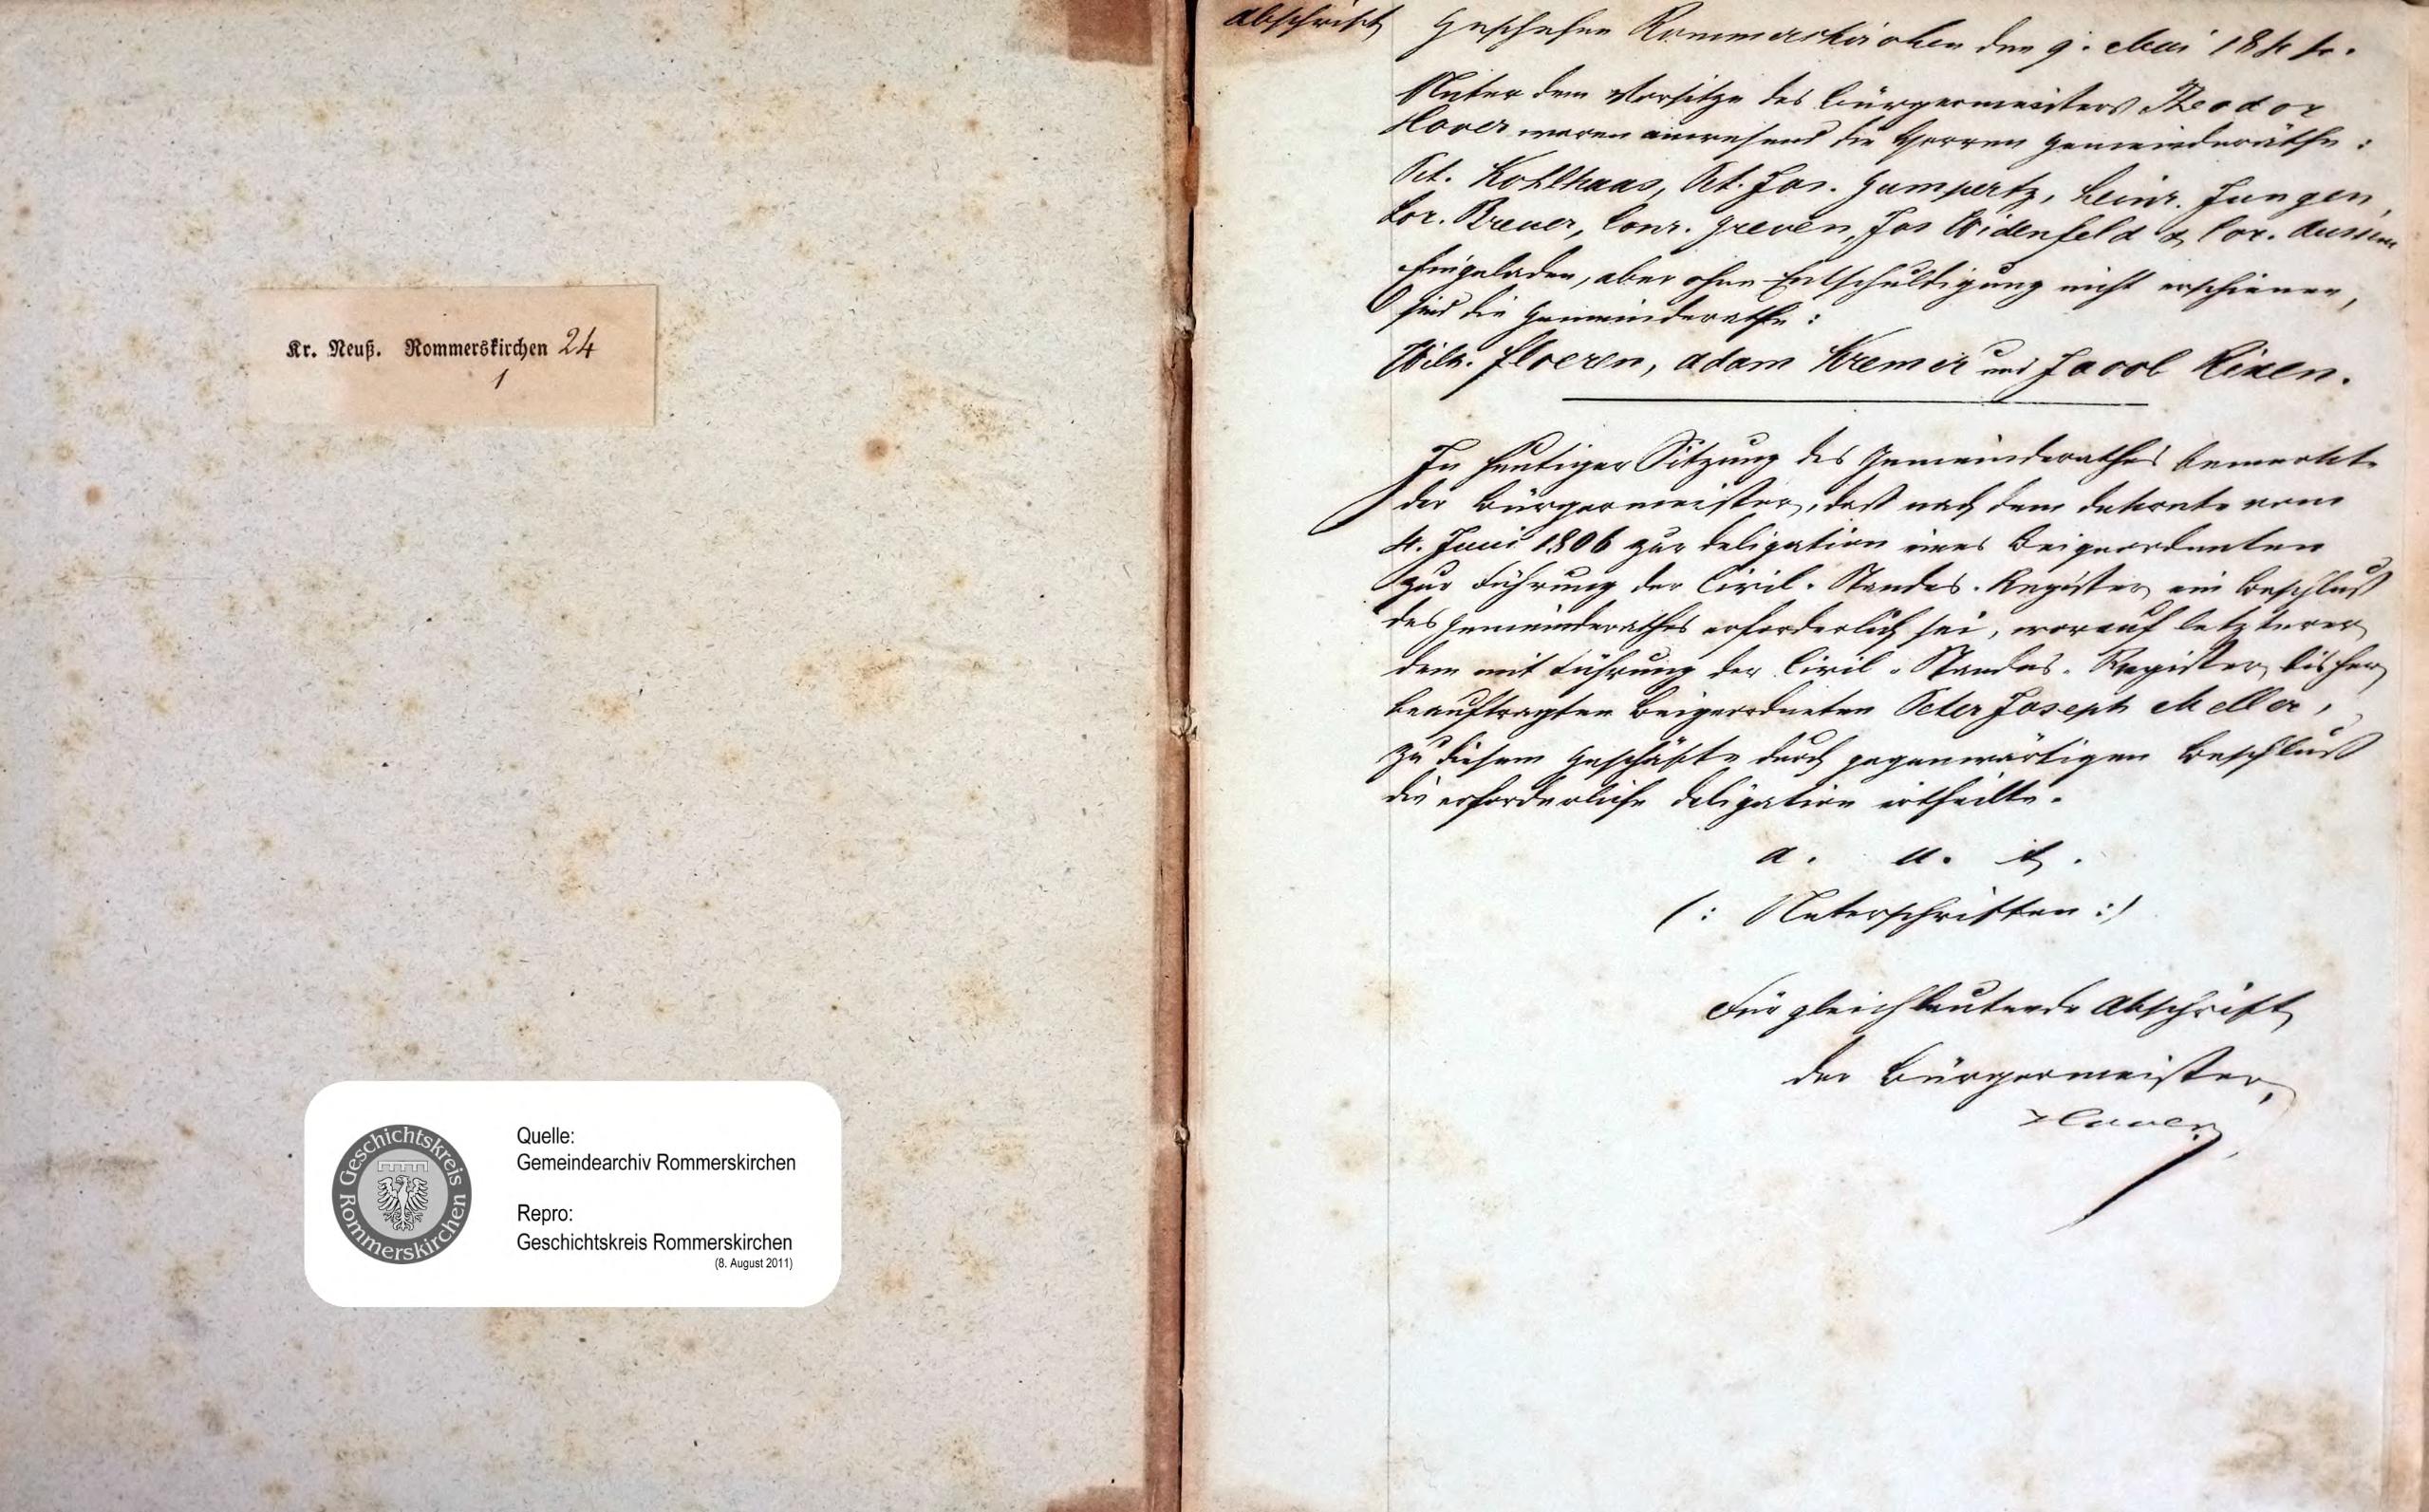 Kr. Neuß. Rommerskirchen 24
1
Geschichtskreis Rommerskirchen
Quelle:
Gemeindearchiv Rommerskirchen
Repro:
Geschichtskreis Rommerskirchen
(8. August 2011)
Abschrift Geschehen Rommerskirchen den 9. Mai
Unter dem Vorsitze des Bürgermeisters Theodor
Hover waren anwesend die Herren Gemeinderäthe:
Pet. Kohlhaas, Pet. Jos. Gumpertz, Heinr. Jungen,
Lor. Breuer, Conr. Greven, Jos Widenfeld & Cor.
Eingeladen, aber ohne Entschuldigung nicht erschienen,
sind die Gemeinderathe:
Wilh. Floeren, Adam Kremer und Jacob Rixen.
In heutiger Sitzung des Gemeinderathes bemerkte
der Bürgermeister, daß nach dem Dekrete vom
4. Juni 1806 zur Deligation eines Beigeordneten
zur Führung der Civil-Standes-Register ein Beschluß
des Gemeinderathes erforderlich sei, worauf letzterer
dem mit Führung der Civil-Standes-Register bisher
beauftragten Beigeordneten Peter Joseph Meller,
zu diesem Geschäfte durch gegenwärtigen Beschluß
die erforderliche Deligation ertheilte.
a. u. s.
(: Unterschriften :)
Für gleichlautende Abschrift
der Bürgermeister,
Hover